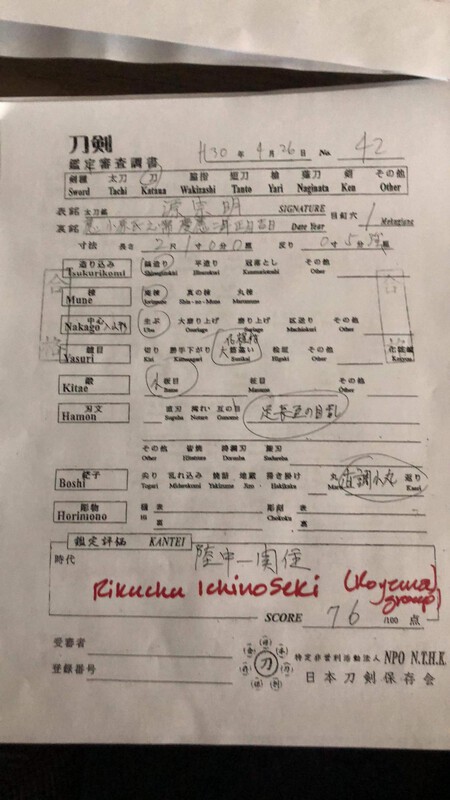 刀剣
鑑定審査調書
H30 年 4 月 26 日 No. 42
剣種 太刀 刀 脇指 短刀 槍 薙刀 剣 その他
Sword Tachi Katana Wakizashi Tanto Yari Naginata Ken Other
表銘 太刀銘 源宗明 SIGNATURE 目釘穴 1 Mekugiana
裏銘 慶應二年正月吉日 Date Year
寸法 長さ 2 尺 1 寸 0 分 0 厘 反り 0 寸 5 分
造り込み 鎬造り 平造り 冠落とし その他
Tsukurikomi Shinogizukuri Other
棟 庵棟 真の棟 丸棟
Mune Iorimune Shin-no-Mune Marumune
中心 生ぶ 大磨り上げ 磨り上げ 区送り その他
Nakago Ubu Osuriage Suriage Machiokuri Other
鑢目 切り 勝手下がり 大筋違い 桧垣 その他 化粧鑢
Yasuri Kiri Kattesagari Sujikai Higaki Other
鍛 小 板目 柾目 その他
Kitae Itame Masame Other
刃文 直刃 湾れ 互の目 足長互の目乱
Hamon Suguha Notare Gunome
その他 皆焼 涛瀾刃 簾刃
Other Hitatsura Toranba Sudareba
鋩子 尖り 乱れ込み 焼詰 地蔵 掃き掛け 丸 直調小丸 返り
Boshi Togari Midarekomi Yakizume Jizo Hakikake Kaeri
彫物 樋 表 彫刻 表
Horimono Hi 裏 Chokoku 裏
鑑定評価 KANTEI
時代 陸中一関住
Rikuchu Ichinoseki (Koyama group)
SCORE 76 /100 点
受審者
登録番号
刀
特定非営利活動法人 NPO N.T.H.K.
日本刀剣保存会